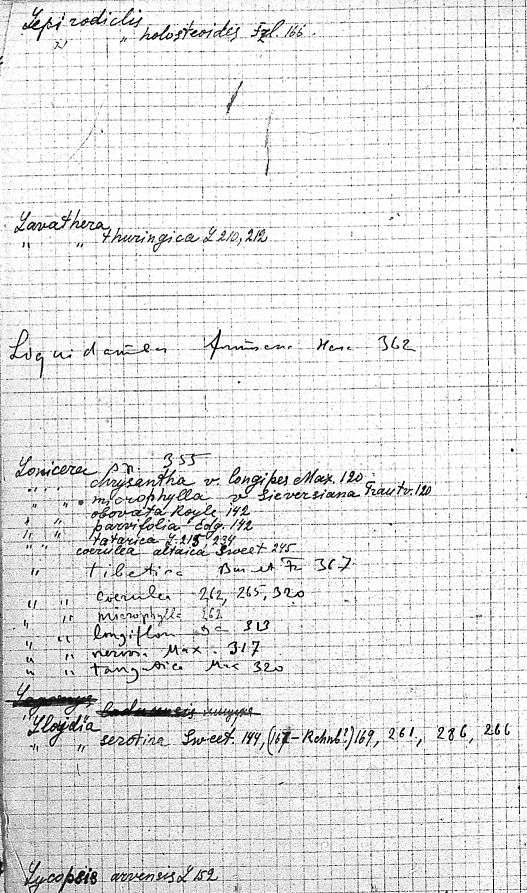 Lepirodiclis
" " holosteoides Fzl. 166
Lavathera
" " thuringica L 210, 212
Liquidambar formosana Hance 362
Lonicera 355
" " chrysantha v. longipes Max. 120
" " microphylla v Sieversiana Trautv. 120
" " obovata Royle 142
" " parvifolia Edg. 142
" " tatarica L 215, 234
" " coerulea altaica Sweet 245
" tibetica Bur et Fr 367
" " coerulea 262, 265, 320
" " microphylla 262
" " longiflora DC 313
" " nervosa Max. 317
" " tangutica Max 320
Lagomys ladacensis
Llojdia
" " serotina Sweet. 144, (167 - Rchnb?) 169, 261, 286, 266
Lycopsis arvensis L 152